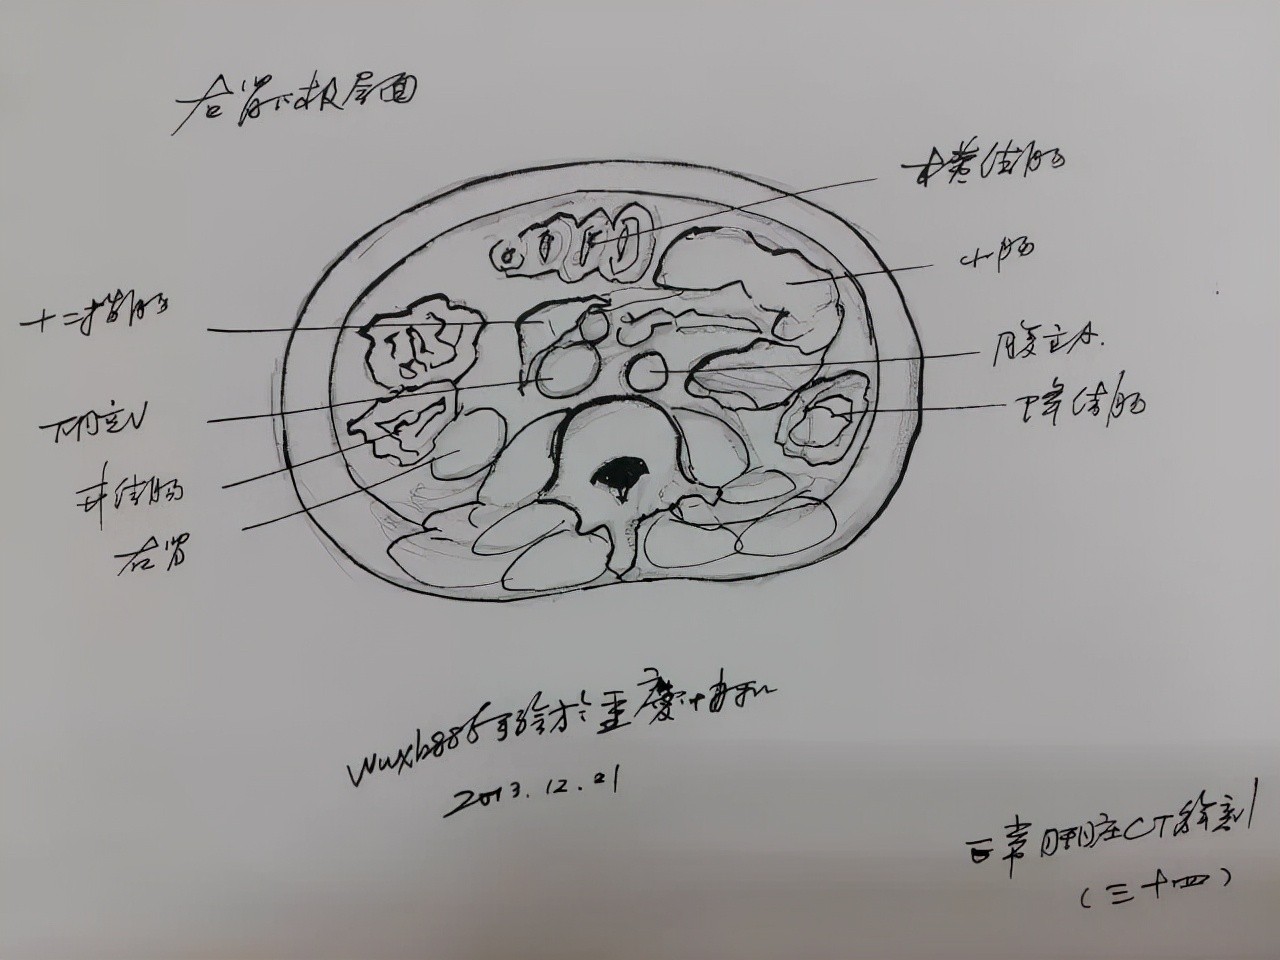 右肾下极层面
横结肠
小肠
十二指肠
腹主A.
下腔V
降结肠
升结肠
右肾
wuxb885 于重庆
2013.12.21
日常 CT
(三十四)